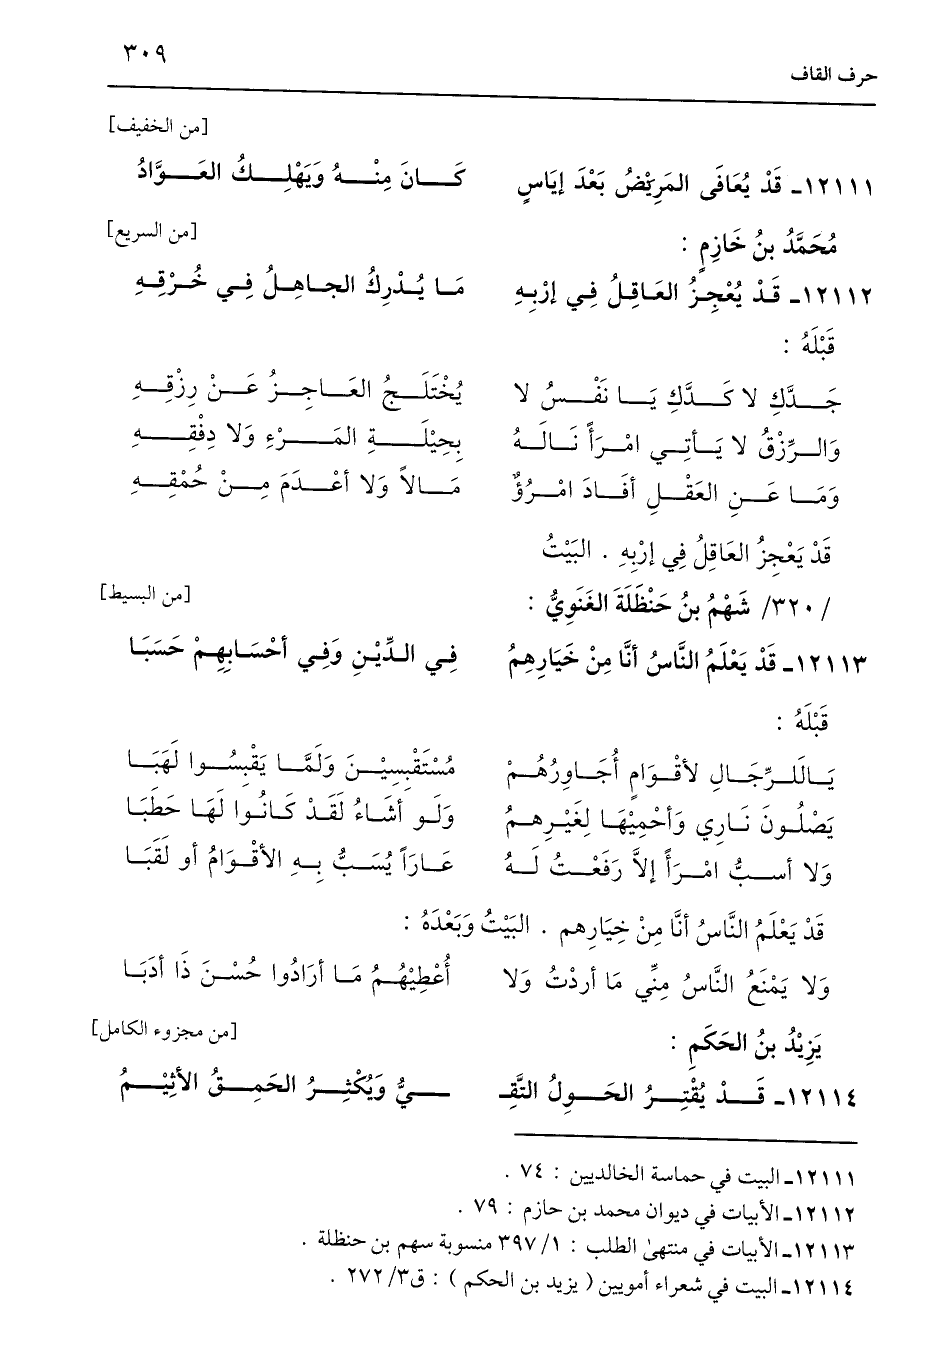 ٣٠٩
حرف القاف
[من الخفيف]
١٢١١١ـ قَدْ يُعَافَى المَرِيْضُ بَعْدَ إيَاسٍ كَانَ مِنْهُ وَيَهْلِكُ العَوَّادُ
[من السريع]
مُحَمَّدُ بنُ خَازِمٍ :
١٢١١٢ـ قَدْ يُعْجِزُ العَاقِلُ فِي إرْبِهِ مَا يُدْرِكُ الجاهِلُ فِي خُرْقِهِ
قَبْلَهُ :
جَدَّكِ لا كَدَّكِ يَا نَفْسُ لا يُخْتَلَجُ العَاجِزُ عَنْ رِزْقِهِ
وَالرِّزْقُ لا يَأتِي امْرَأً نَالَهُ بِحِيْلَةِ المَرْءِ وَلا دِفْقِهِ
وَمَا عَنِ العَقْلِ أفَادَ امْرُؤٌ مَالاً وَلا أعْدَمَ مِنْ حُمْقِهِ
قَدْ يَعْجِزُ العَاقِلُ فِي إرْبِهِ . البَيْتُ
[من البسيط]
/٣٢٠/ شَهْمُ بنُ حَنْظَلَةَ الغَنَوِيُّ :
١٢١١٣ـ قَدْ يَعْلَمُ النَّاسُ أنَّا مِنْ خَيَارِهِمُ فِي الدِّيْنِ وَفِي أحْسَابِهِمْ حَسَبَا
قَبْلَهُ :
يَاللرِّجَالِ لأقْوَامٍ أُجَاوِرُهُمْ مُسْتَقْبِسِيْنَ وَلَمَّا يَقْبِسُوا لَهَبَا
يَصْلُونَ نَارِي وَأحْمِيْهَا لِغَيْرِهِمُ وَلَو أشَاءُ لَقَدْ كَانُوا لَهَا حَطَبَا
وَلا أسبُّ امْرَأً إلاَّ رَفَعْتُ لَهُ عَارَاً يُسَبُّ بِهِ الأقْوَامُ أو لَقَبَا
قَدْ يَعْلَمُ النَّاسُ أنَّا مِنْ خِيَارِهم . البَيْتُ وَبَعْدَهُ :
وَلا يَمْنَعُ النَّاسُ مِنِّي مَا أردْتُ وَلا أُعْطِيْهُمُ مَا أرَادُوا حُسْنَ ذَا أدَبَا
[من مجزوء الكامل]
يَزِيْدُ بنُ الحَكَمِ :
١٢١١٤ـ قَدْ يُقْتِرُ الحَوِلُ التَّقِـ ـيُّ وَيُكْثِرُ الحَمِقُ الأثِيْمُ
١٢١١١ـ البيت في حماسة الخالديين : ٧٤ .
١٢١١٢ـ الأبيات في ديوان محمد بن حازم : ٧٩ .
١٢١١٣ـ الأبيات في منتهىٰ الطلب : ١/ ٣٩٧ منسوبة سهم بن حنظلة .
١٢١١٤ـ البيت في شعراء أمويين ( يزيد بن الحكم ) : ق٣/ ٢٧٢ .